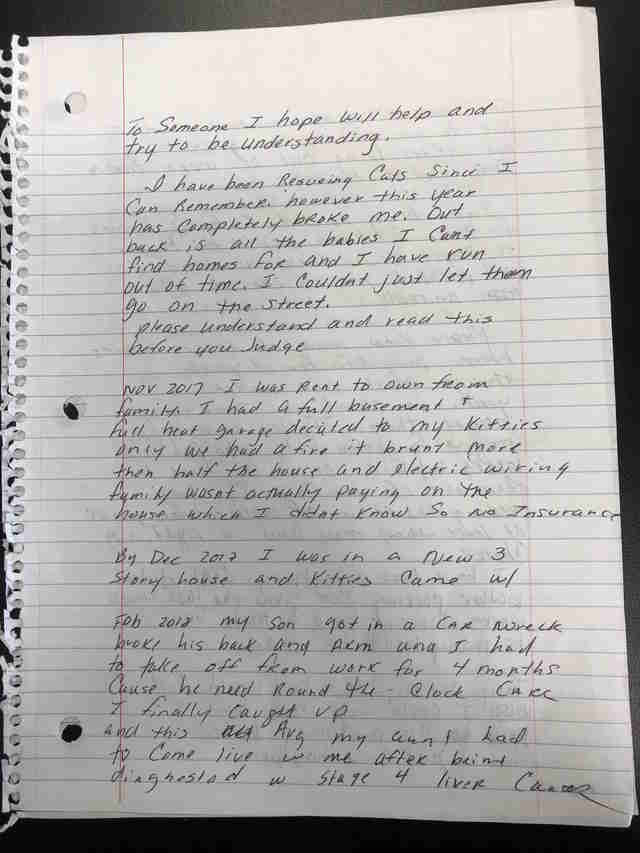 To Someone I hope will help and
try to be understanding.
I have been Rescueing Cats Since I
Can Remember. however this year
has Completely broke me. Out
back is all the babies I Cant
find homes for and I have run
out of time. I Couldnt just let them
go on the street.
please understand and read this
before you Judge
Nov 2017 I was Rent to own from
family I had a full basement +
full heat garage decided to my Kitties
only we had a fire it brunt more
then half the house and electric wiring
family wasnt actually paying on the
house which I didnt know So no Insurance
By Dec 2017 I was in a New 3
Story house and Kitties Came w/
Feb 2018 my Son got in a CAR wreck
broke his back and ARM and I had
to take off from work for 4 months
Cause he need Round the Clock CARE
I finally Caught up
and this Aug my aunt had
to Come live w me after being
w Stage 4 liver Cancer